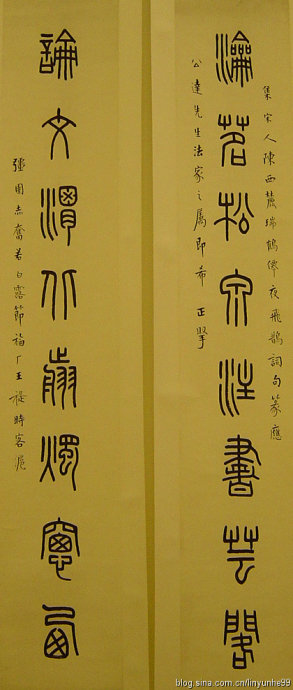 集宋人陳西麓瑞鶴僊夜飛鵲詞句篆應
瀹茗松泉注書芸閣
公達先生法家之屬即希 正掔
論文渭竹翦燭窗西
彊圉赤奮若白露節福厂王禔時客滬
blog.sina.com.cn/linyunhe99